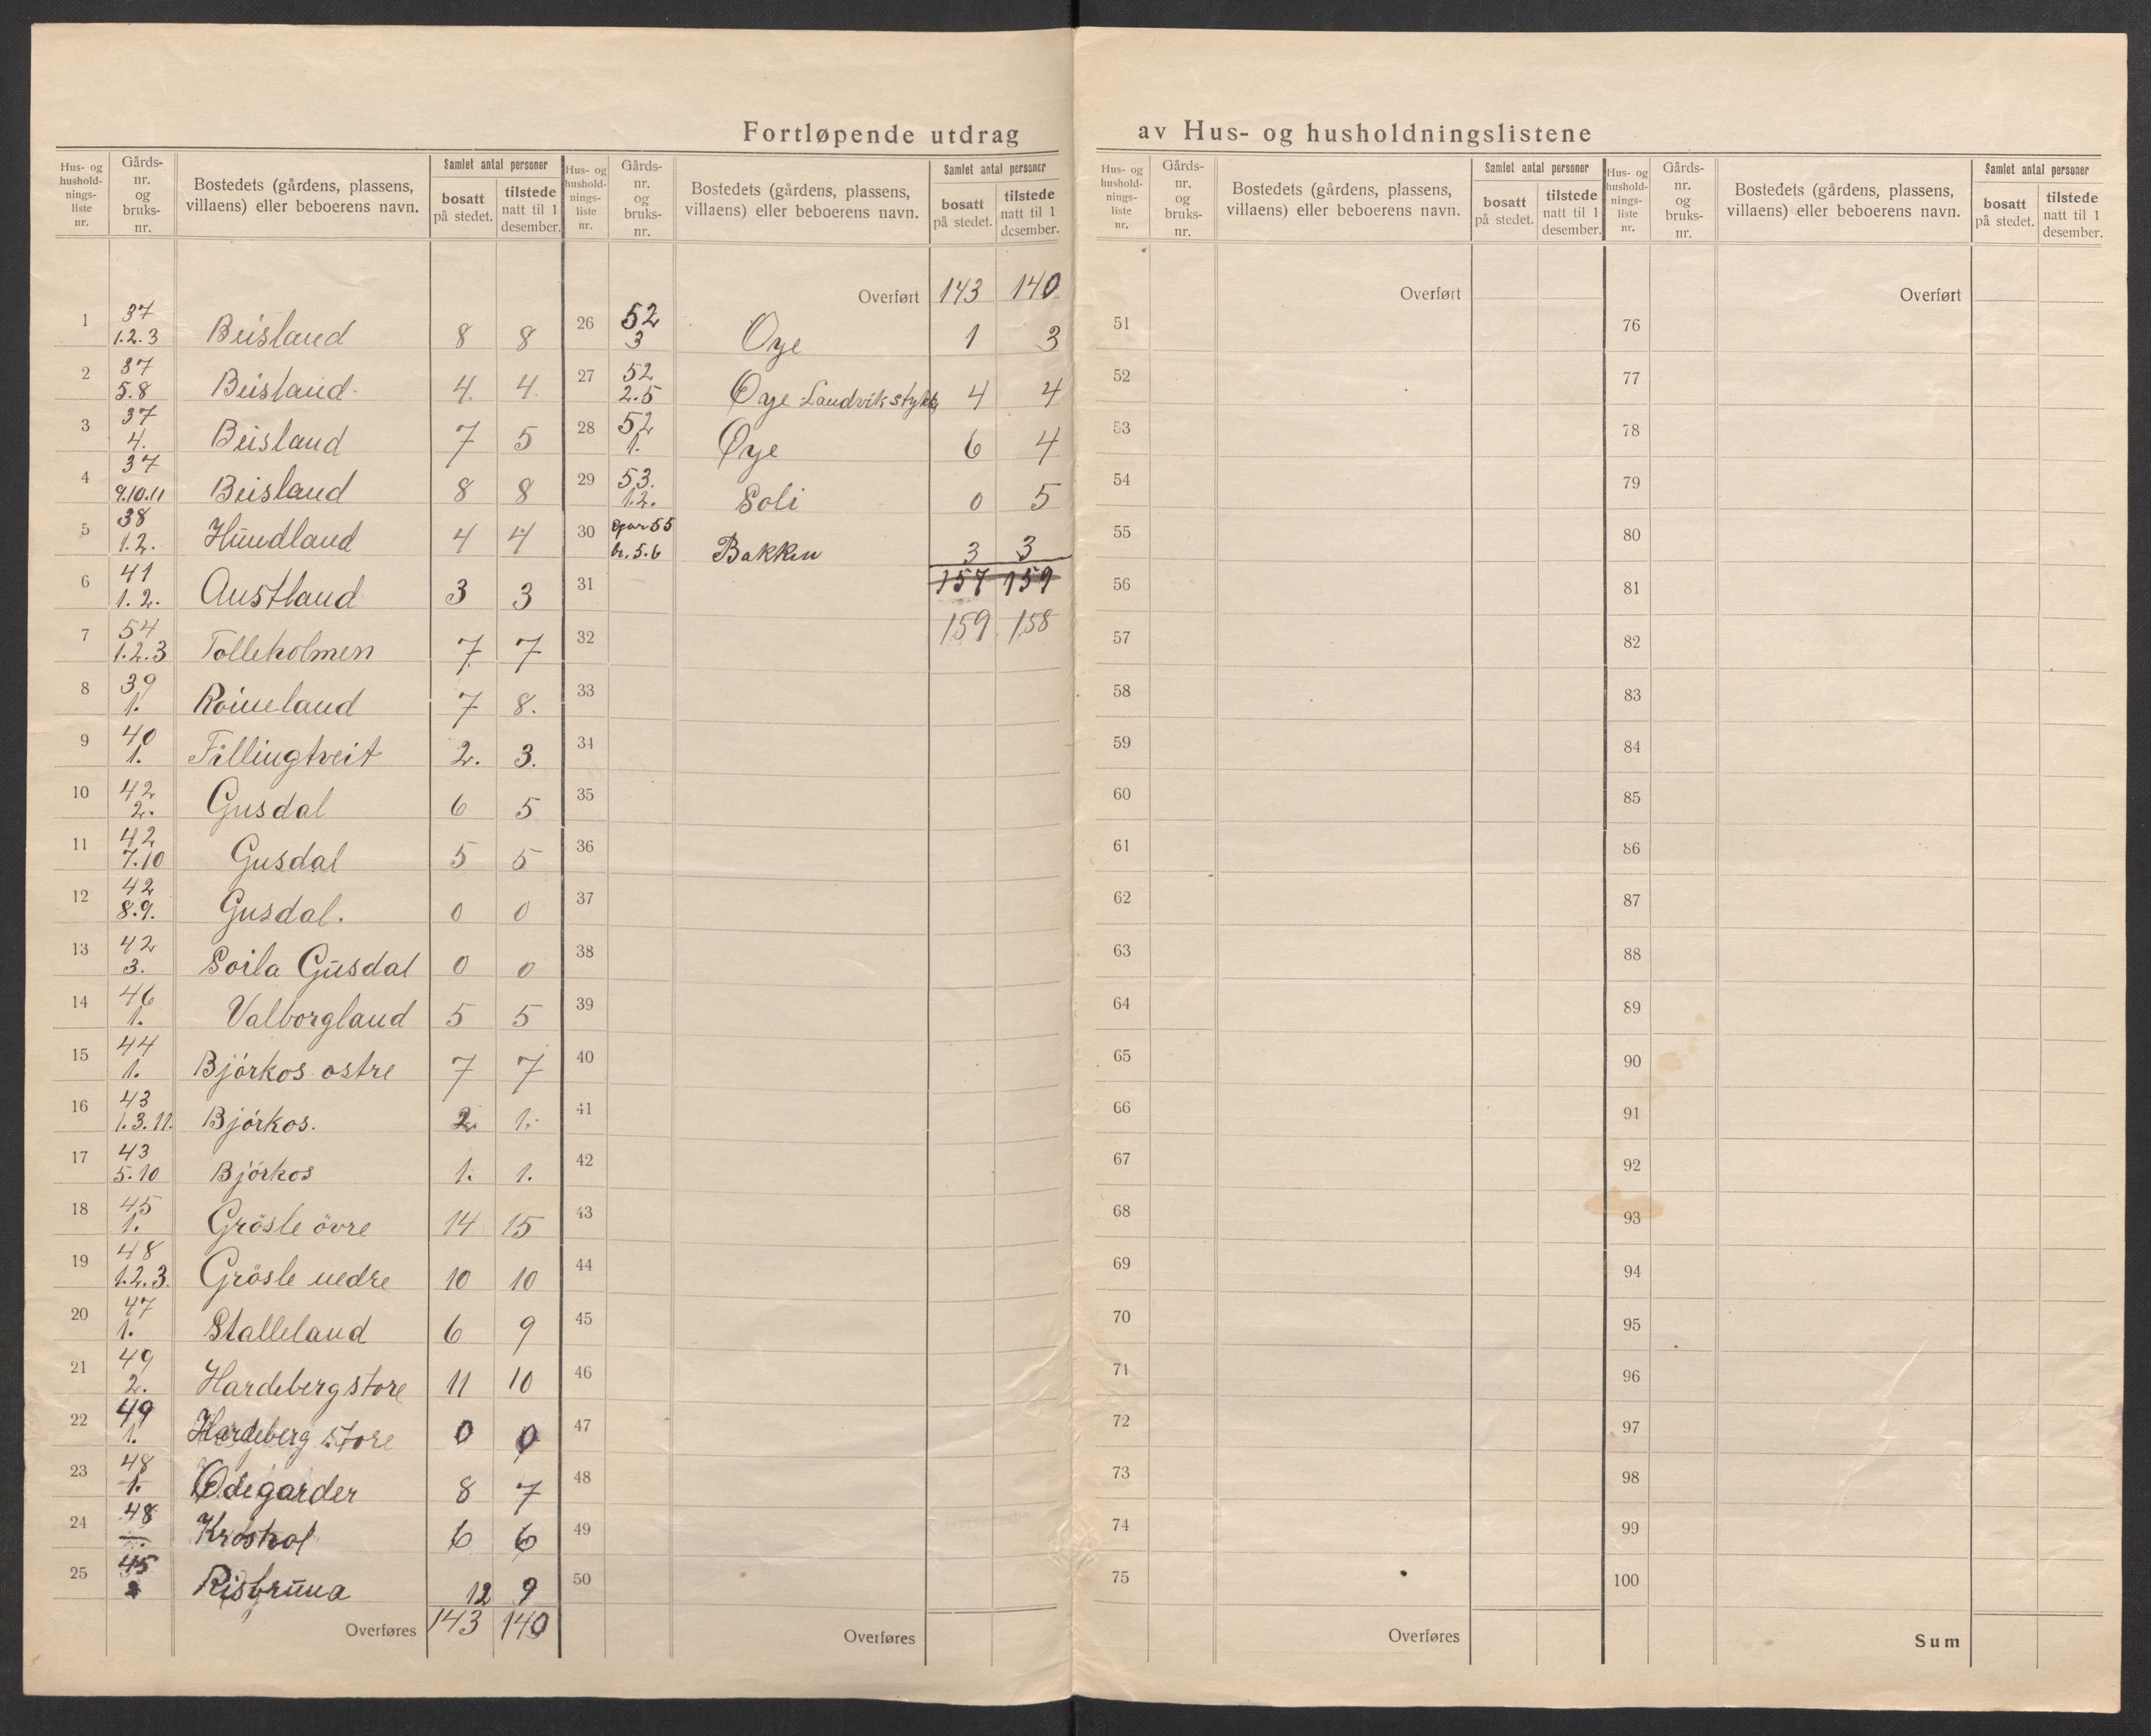 Fortløpende utdrag av Hus- og husholdningslistene
Hus- og hushold- nings- liste nr. | Gårds- nr. og bruks- nr. | Bostedets (gårdens, plassens, villaens) eller beboerens navn. | Samlet antal personer | bosatt på stedet. | tilstede natt til 1 desember.
1 | 37 1.2.3 | Beisland | 8 | 8
2 | 37 5.8 | Beisland. | 4. | 4.
3 | 37 4. | Beisland | 7 | 5
4 | 37 9.10.11 | Beisland | 8 | 8
5 | 38 1.2. | Hundland | 4 | 4
6 | 41 1.2. | Austland | 3 | 3
7 | 54 1.2.3 | Tolleholmen | 7 | 7
8 | 39 1. | Roineland | 7 | 8.
9 | 40 1. | Fillingtveit | 2. | 3.
10 | 42 2. | Gusdal | 6 | 5
11 | 42 7.10 | Gusdal | 5 | 5
12 | 42 8.9. | Gusdal. | 0 | 0
13 | 42 3. | Soila Gusdal | 0 | 0
14 | 46 1. | Valborgland | 5 | 5
15 | 44 1. | Björkos ostre | 7 | 7
16 | 43 1.3.11. | Björkos. | 2. | 1.
17 | 43 5.10 | Björkos | 1. | 1.
18 | 45 1. | Grösle övre | 14 | 15
19 | 48 1.2.3. | Grösle nedre | 10 | 10
20 | 47 1. | Stalleland | 6 | 9
21 | 49 2. | Hardeberg store | 11 | 10
22 | 49 1. | Hardeberg store | 0 | 0
23 | 48 1. | Ödegarder | 8 | 7
24 | 48 | Kroshol | 6 | 6
25 | 45 | Risbruna | 12 | 9
Overføres | 143 | 140
Hus- og hushold- nings- liste nr. | Gårds- nr. og bruks- nr. | Bostedets (gårdens, plassens, villaens) eller beboerens navn. | Samlet antal personer | bosatt på stedet. | tilstede natt til 1 desember.
Overført | 143 | 140
26 | 52 3 | Oye | 1 | 3
27 | 52 2.5 | Oye Landvikstykk | 4 | 4
28 | 52 1. | Øye | 6 | 4
29 | 53. 1.2. | Soli | 0 | 5
30 | 55 br. 5.6 | Bakken | 3 | 3
31 | 157 | 159
32 | 159 | 158
33
34
35
36
37
38
39
40
41
42
43
44
45
46
47
48
49
50
Overføres
Hus- og hushold- nings- liste nr. | Gårds- nr. og bruks- nr. | Bostedets (gårdens, plassens, villaens) eller beboerens navn. | Samlet antal personer | bosatt på stedet. | tilstede natt til 1 desember.
Overført
51
52
53
54
55
56
57
58
59
60
61
62
63
64
65
66
67
68
69
70
71
72
73
74
75
Overføres
Hus- og hushold- nings- liste nr. | Gårds- nr. og bruks- nr. | Bostedets (gårdens, plassens, villaens) eller beboerens navn. | Samlet antal personer | bosatt på stedet. | tilstede natt til 1 desember.
Overført
76
77
78
79
80
81
82
83
84
85
86
87
88
89
90
91
92
93
94
95
96
97
98
99
100
Sum